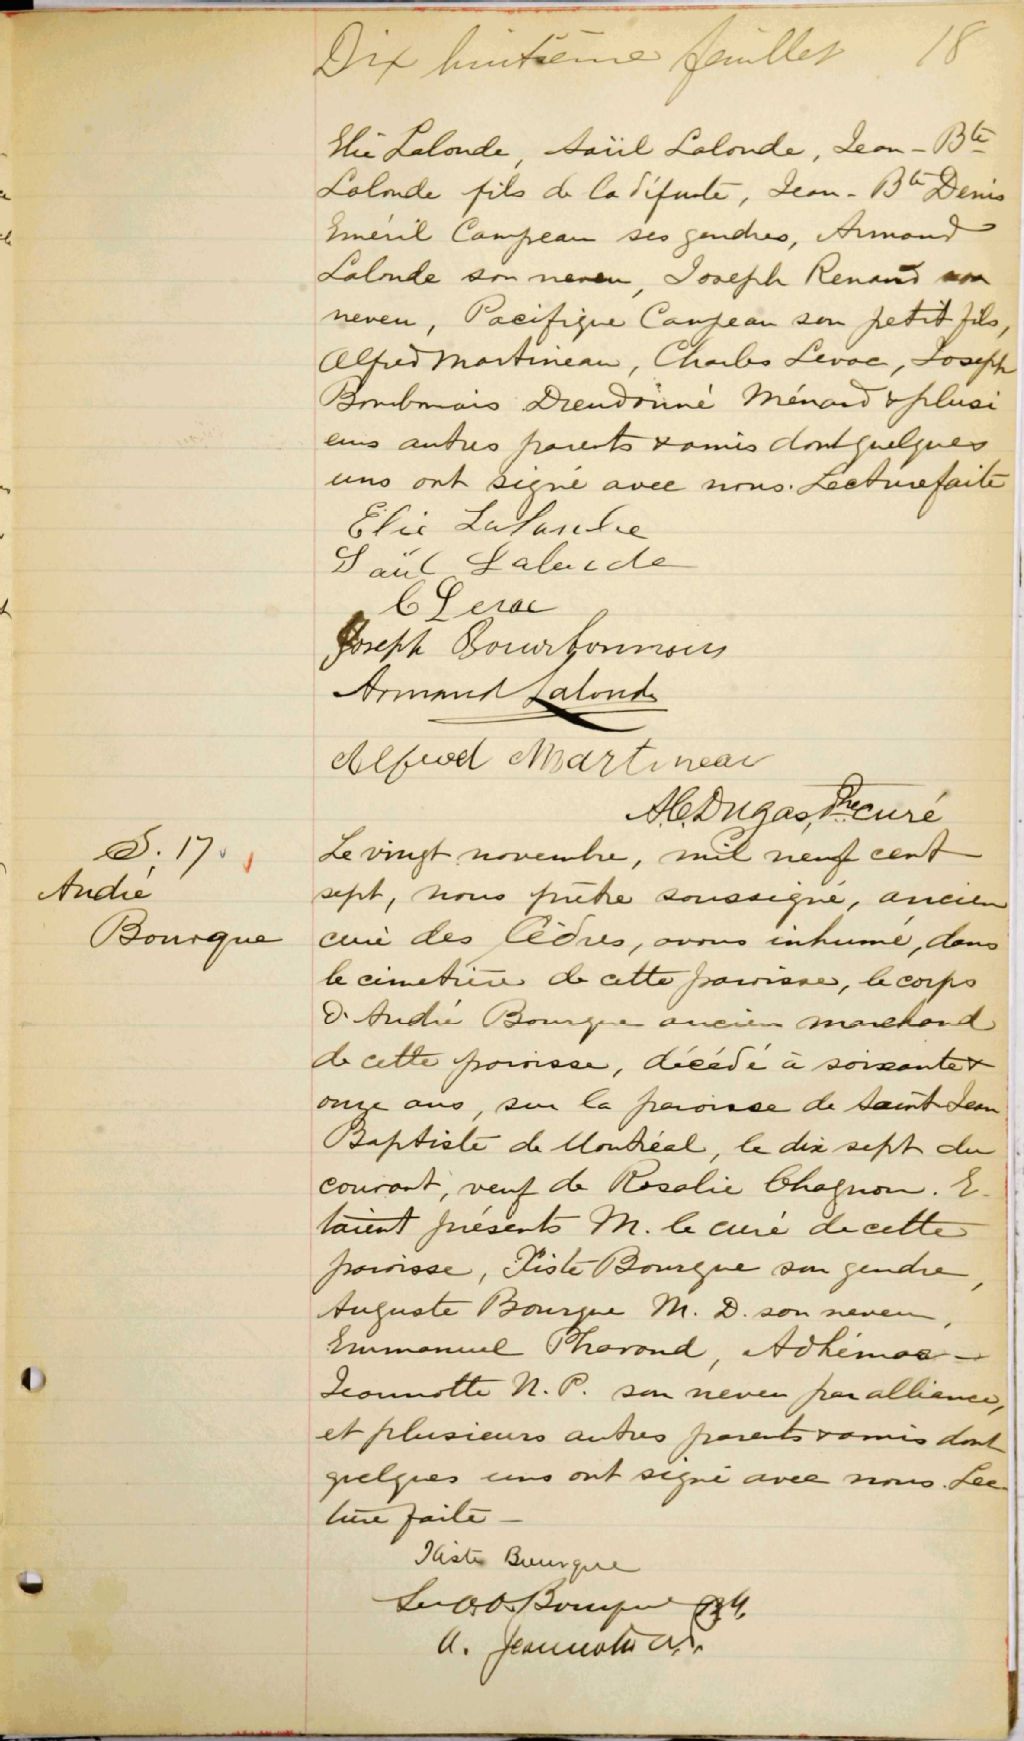 Dix huitième feuillet 18
Elie Lalonde, Saül Lalonde, Jean-Bte
Lalonde fils de la défunte, Jean-Bte Denis
Eméril Campeau ses gendres, Armand
Lalonde son neveu, Joseph Renaud son
neveu, Pacifique Campeau son petit fils,
Alfred Martineau, Charles Levac, Joseph
Bourbonnais Dieudonné Ménard & plusi
eurs autres parents & amis dont quelques
uns ont signé avec nous. Lecture faite
Elie Lalonde
Saül Lalonde
C Levac
Joseph Bourbonnais
Armand Lalonde
Alfred Martineau
A.C. Dugas, Ptre curé
S. 17.
André
Bourque
Le vingt novembre, mil neuf cent
sept, nous prêtre soussigné, ancien
curé des Cèdres, avons inhumé, dans
le cimetière de cette paroisse, le corps
d'André Bourque ancien marchand
de cette paroisse, décédé à soixante &
onze ans, sur la paroisse de Saint Jean
Baptiste de Montréal, le dix sept du
courant, veuf de Rosalie Chagnon. E-
taient présents M. le curé de cette
paroisse, Xiste Bourque son gendre,
Auguste Bourque M. D. son neveu,
Emmanuel Pharand, Adhémar
Jeannotte N. P. son neveu par alliance,
et plusieurs autres parents & amis dont
quelques uns ont signé avec nous. Lec-
ture faite —
Xiste Bourque
Bourque
A. Jeannotte